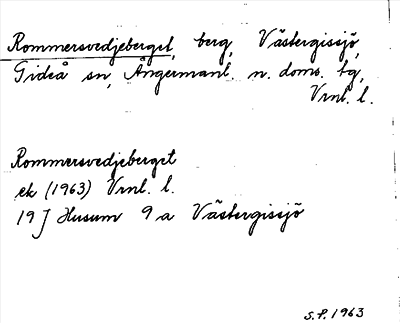 Rommersvedjeberget, berg, Västergissjö,
Gideå sn, Ångermanl. n. doms. tg,
Vrnl. l.
Rommersvedjeberget
ek (1963) Vrnl. l.
19 J Husum 9 a Västergissjö
S.P. 1963